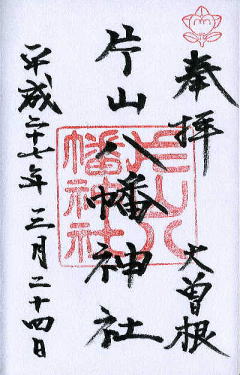 奉拝 大曽根
片山八幡神社
片山八幡神社
平成二十七年三月二十四日